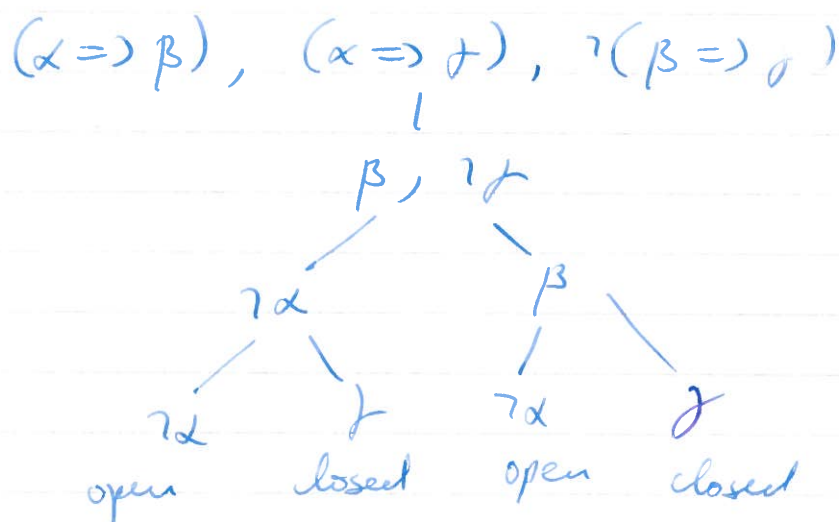 (α => β), (α => γ), ¬(β => γ)
β, ¬γ
¬α β
¬α γ ¬α γ
open closed open closed